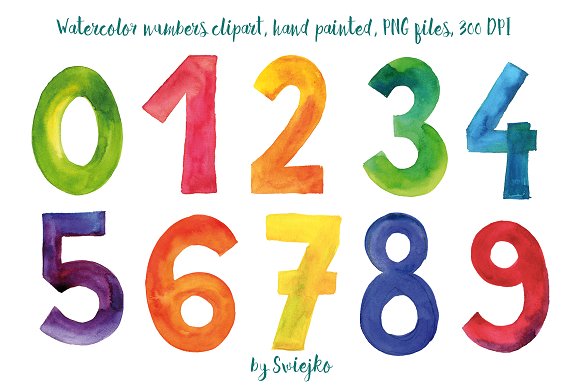 Watercolor numbers clipart, hand painted, PNG files, 300 DPI
0 1 2 3 4
5 6 7 8 9
by Swiejko